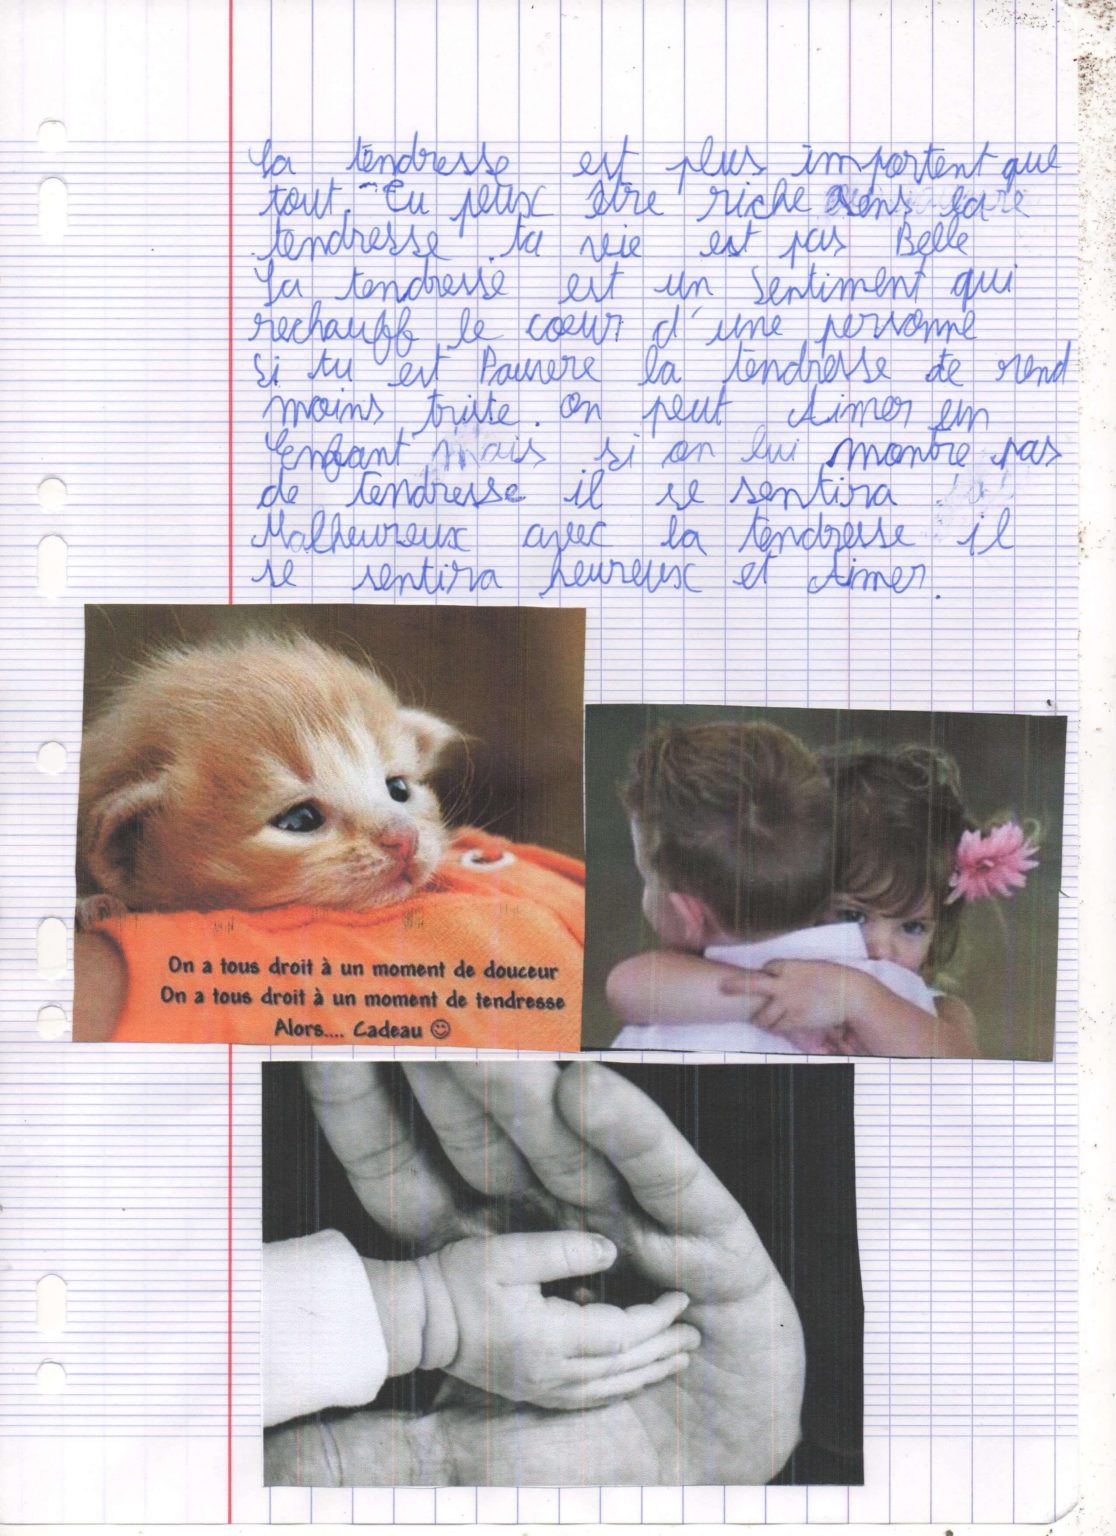 La tendresse est plus importent que
tout. Tu peux être riche sens la
tendresse ta vie est pas Belle
La tendresse est un Sentiment qui
rechauff le coeur d'une personne
Si tu est Pauvre la tendresse te rend
moins triste. on peut Aimer un
Enfant mais si on lui montre pas
de tendresse il se sentira
Malheureux avec la tendresse il
se sentira heureux et Aimer.
On a tous droit à un moment de douceur
On a tous droit à un moment de tendresse
Alors.... Cadeau ☺